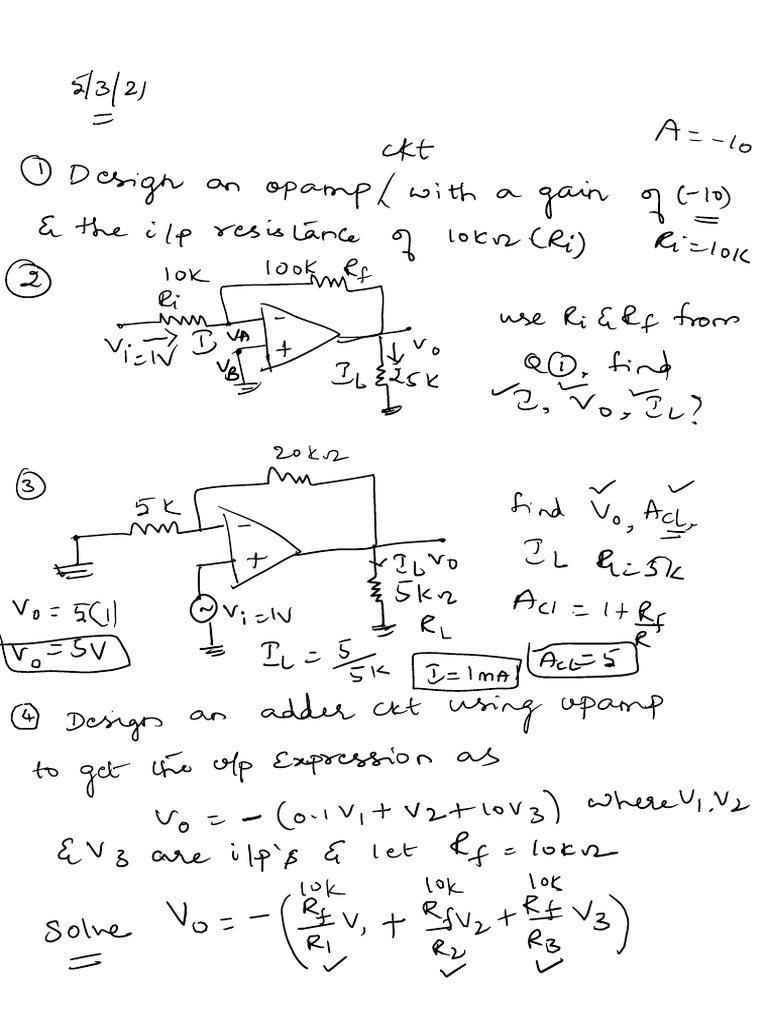 5/3/21
ckt
A = -10
① Design an opamp / with a gain of (-10)
& the i/p resistance of 10KΩ (Ri) Ri=10K
②
10K 100K Rf
Ri
Vi=1V I VA - + VB Vo
IL 25K
use Ri & Rf from
Q①, find
I, Vo, IL?
③
20KΩ
5K
- +
Vi=1V
IL Vo
5KΩ
RL
find Vo, ACL,
IL Ri=5K
ACl = 1+ Rf/R
Vo = 5(1)
Vo = 5V
IL = 5/5K I=1mA ACL=5
④ Design an adder ckt using opamp
to get the o/p Expression as
Vo = - (0.1V1 + V2 + 10V3) where V1, V2
& V3 are i/p's & let Rf = 10KΩ
10K 10K 10K
Solve Vo = - (Rf/R1 V1 + Rf/R2 V2 + Rf/R3 V3)